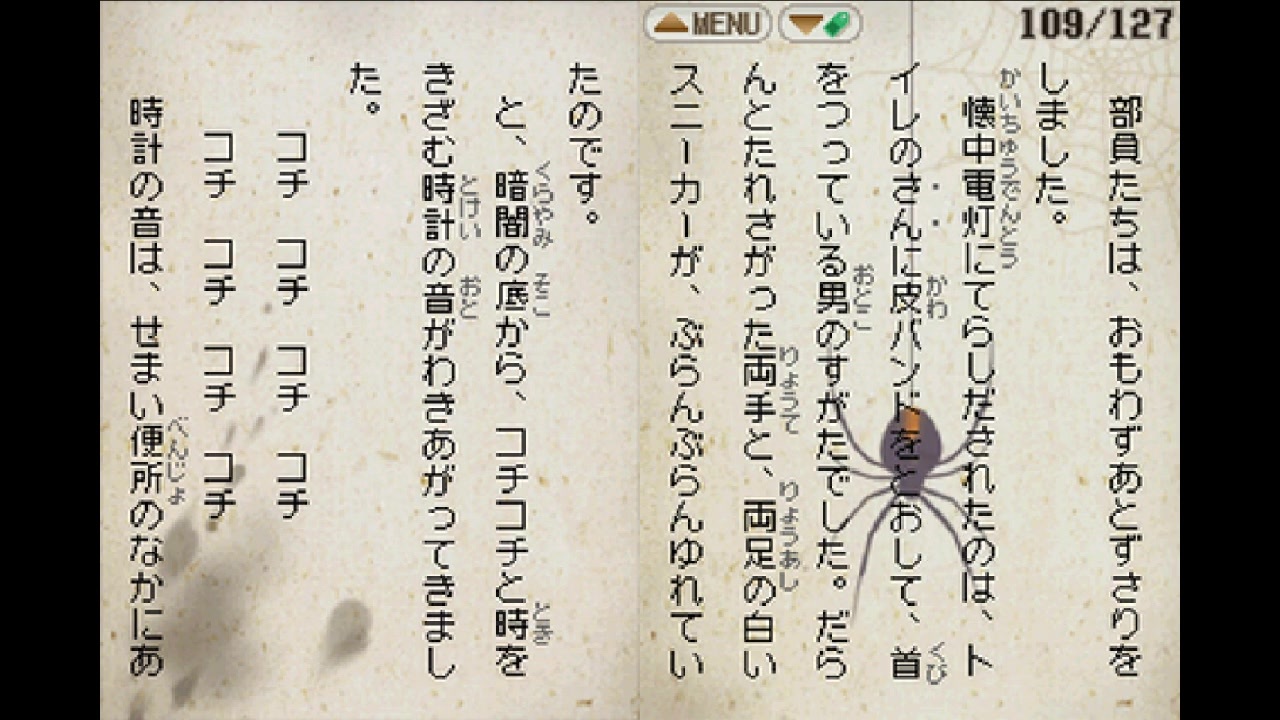 MENU
109/127
部員たちは、おもわずあとずさりを
しました。
懐中電灯にてらしだされたのは、ト
かいちゅうでんとう
イレのさんに皮バンドをとおして、首
かわ
くび
をつっている男のすがたでした。だら
おとこ
んとたれさがった両手と、両足の白い
りょうて
りょうあし
スニーカーが、ぶらんぶらんゆれてい
たのです。
と、暗闇の底から、コチコチと時を
くらやみ
そこ
とき
きざむ時計の音がわきあがってきまし
とけい
おと
た。
コチ コチ コチ コチ
コチ コチ コチ コチ
時計の音は、せまい便所のなかにあ
べんじょ